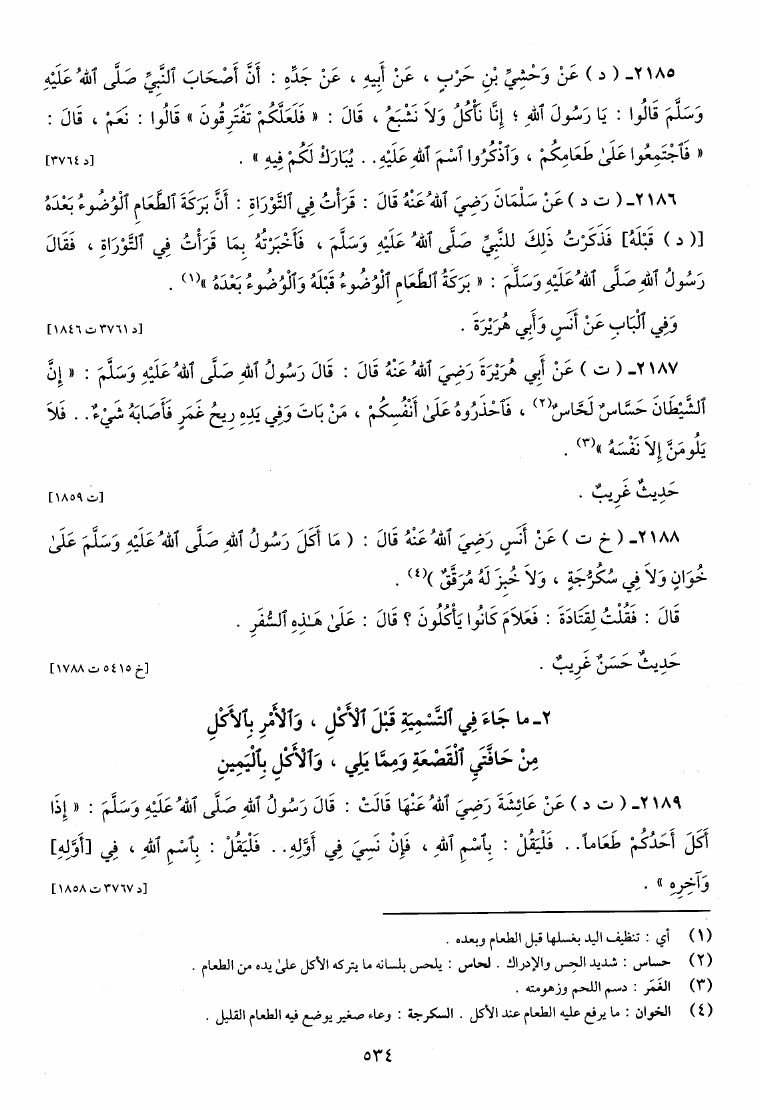 ٢١٨٥ـ ( د ) عَنْ وَحْشِيِّ بْنِ حَرْبٍ ، عَنْ أَبِيهِ ، عَنْ جَدِّهِ : أَنَّ أَصْحَابَ ٱلنَّبِيِّ صَلَّى ٱللهُ عَلَيْهِ
وَسَلَّمَ قَالُوا : يَا رَسُولَ ٱللهِ ؛ إِنَّا نَأْكُلُ وَلاَ نَشْبَعُ ، قَالَ : « فَلَعَلَّكُمْ تَفْتَرِقُونَ » قَالُوا : نَعَمْ ، قَالَ :
« فَٱجْتَمِعُوا عَلَىٰ طَعَامِكُمْ ، وَٱذْكُرُوا ٱسْمَ ٱللهِ عَلَيْهِ. . يُبَارَكْ لَكُمْ فِيهِ » . [د ٣٧٦٤]
٢١٨٦ـ ( ت د ) عَنْ سَلْمَانَ رَضِيَ ٱللهُ عَنْهُ قَالَ : قَرَأْتُ فِي ٱلتَّوْرَاةِ : أَنَّ بَرَكَةَ ٱلطَّعَامِ ٱلْوُضُوءُ بَعْدَهُ
[( د ) قَبْلَهُ] فَذَكَرْتُ ذَلِكَ للنَّبِيِّ صَلَّى ٱللهُ عَلَيْهِ وَسَلَّمَ ، فَأَخْبَرْتُهُ بِمَا قَرَأْتُ فِي ٱلتَّوْرَاةِ ، فَقَالَ
رَسُولُ ٱللهِ صَلَّى ٱللهُ عَلَيْهِ وَسَلَّمَ : « بَرَكَةُ ٱلطَّعَامِ ٱلْوُضُوءُ قَبْلَهُ وَٱلْوُضُوءُ بَعْدَهُ »(١) .
وَفِي ٱلْبَابِ عَنْ أَنَسٍ وَأَبِي هُرَيْرَةَ . [د ٣٧٦١ ت ١٨٤٦]
٢١٨٧ـ ( ت ) عَنْ أَبِي هُرَيْرَةَ رَضِيَ ٱللهُ عَنْهُ قَالَ : قَالَ رَسُولُ ٱللهِ صَلَّى ٱللهُ عَلَيْهِ وَسَلَّمَ : « إِنَّ
ٱلشَّيْطَانَ حَسَّاسٌ لَحَّاسٌ(٢) ، فَٱحْذَرُوهُ عَلَىٰ أَنْفُسِكُمْ ، مَنْ بَاتَ وَفِي يَدِهِ رِيحُ غَمَرٍ فَأَصَابَهُ شَيْءٌ. . فَلاَ
يَلُومَنَّ إِلاَّ نَفْسَهُ »(٣) .
حَدِيثٌ غَرِيبٌ . [ت ١٨٥٩]
٢١٨٨ـ ( خ ت ) عَنْ أَنَسٍ رَضِيَ ٱللهُ عَنْهُ قَالَ : ( مَا أَكَلَ رَسُولُ ٱللهِ صَلَّى ٱللهُ عَلَيْهِ وَسَلَّمَ عَلَىٰ
خُوَانٍ وَلاَ فِي سُكُرُّجَةٍ ، وَلاَ خُبِزَ لَهُ مُرَقَّقٌ )(٤) .
قَالَ : فَقُلْتُ لِقَتَادَةَ : فَعَلاَمَ كَانُوا يَأْكُلُونَ ؟ قَالَ : عَلَىٰ هَـٰذِهِ ٱلسُّفَرِ .
حَدِيثٌ حَسَنٌ غَرِيبٌ . [خ ٥٤١٥ ت ١٧٨٨]
٢ـ ما جَاءَ فِي ٱلتَّسْمِيَةِ قَبْلَ ٱلأَكْلِ ، وَٱلأَمْرِ بِٱلأَكْلِ
مِنْ حَافَّتَيِ ٱلْقَصْعَةِ وَمِمَّا يَلِي ، وَٱلأَكْلِ بِٱلْيَمِينِ
٢١٨٩ـ ( ت د ) عَنْ عَائِشَةَ رَضِيَ ٱللهُ عَنْهَا قَالَتْ : قَالَ رَسُولُ ٱللهِ صَلَّى ٱللهُ عَلَيْهِ وَسَلَّمَ : « إِذَا
أَكَلَ أَحَدُكُمْ طَعَاماً. . فَلْيَقُلْ : بِٱسْمِ ٱللهِ ، فَإِنْ نَسِيَ فِي أَوَّلِهِ. . فَلْيَقُلْ : بِٱسْمِ ٱللهِ ، فِي [أَوَّلِهِ]
وَآخِرِهِ » . [د ٣٧٦٧ ت ١٨٥٨]
(١) أي : تنظيف اليد بغسلها قبل الطعام وبعده .
(٢) حساس : شديد الحِس والإدراك . لحاس : يلحس بلسانه ما يتركه الآكل علىٰ يده من الطعام .
(٣) الغَمَر : دسم اللحم وزهومته .
(٤) الخوان : ما يرفع عليه الطعام عند الأكل . السكرجة : وعاء صغير يوضع فيه الطعام القليل .
٥٣٤